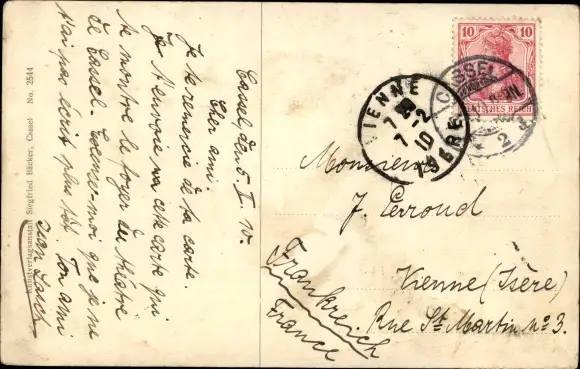 Cassel den 5 II 10.
Cher ami
Je te remercie de ta carte.
Je t'envoie ma cette carte qui
te montre le foyer du théâtre
de Cassel. Excuse-moi que je ne
t'ai pas écrit plus tôt. Ton ami
Kunstverlagsanstalt Siegfried Bäcker, Cassel No. 2544
10
DEUTSCHES REICH
CASSEL
2
VIENNE
7 - 2
10
ISERE
Monsieur
J. Perroud
Vienne (Isère)
Rue St Martin no 3.
Frankreich
France